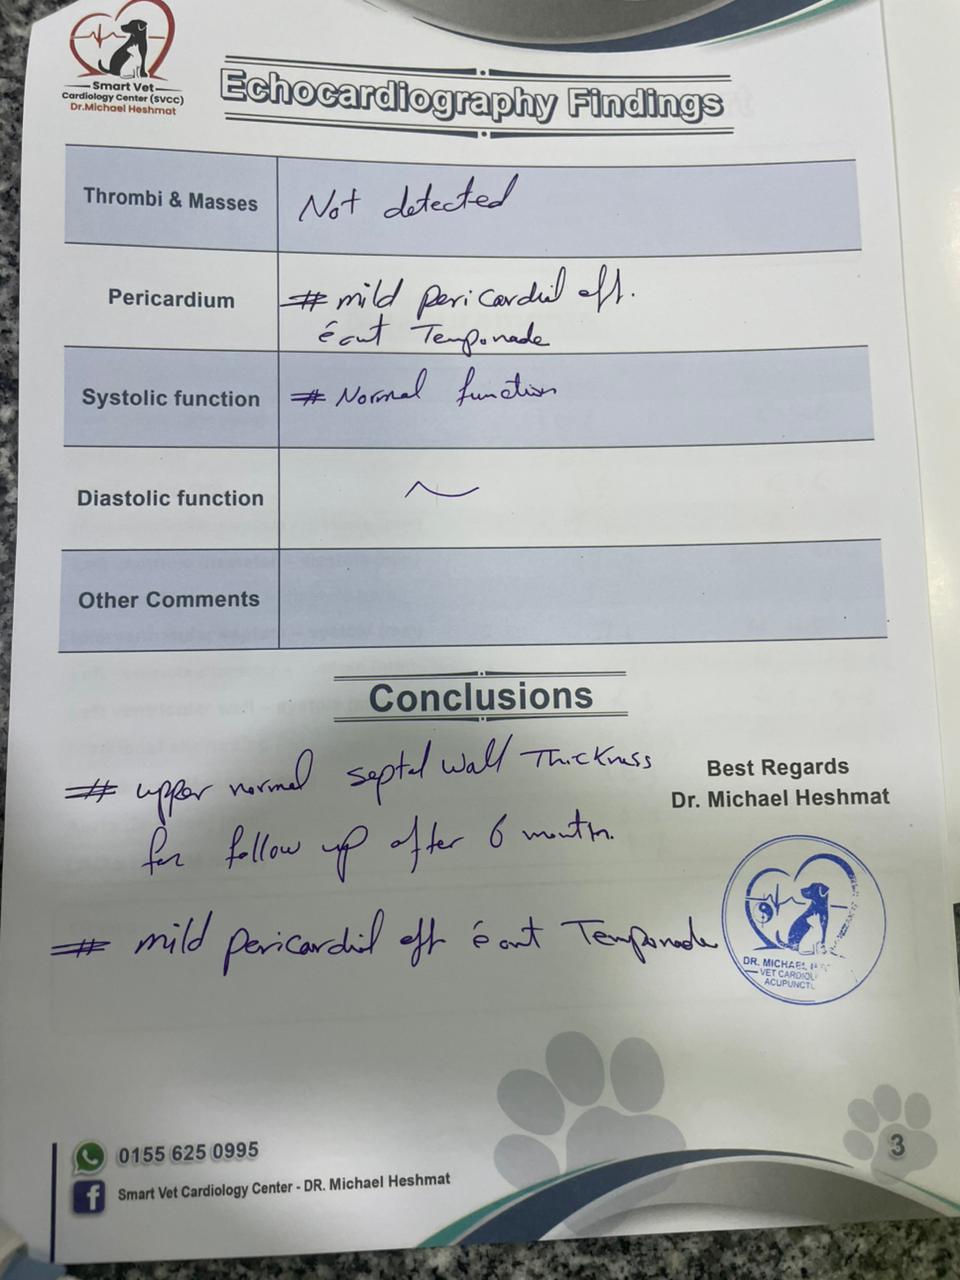 Smart Vet
Cardiology Center (SVCC)
Dr.Michael Heshmat
Echocardiography Findings
Thrombi & Masses
Not detected
Pericardium
# mild pericardial eff.
é out Temponade
Systolic function
# Normal function
Diastolic function
Other Comments
Conclusions
# upper normal septal wall Thickness
for follow up after 6 month.
# mild pericardial eff é out Temponade
Best Regards
Dr. Michael Heshmat
DR. MICHAEL
VET CARDIOL
ACUPUNCTU
0155 625 0995
Smart Vet Cardiology Center - DR. Michael Heshmat
3